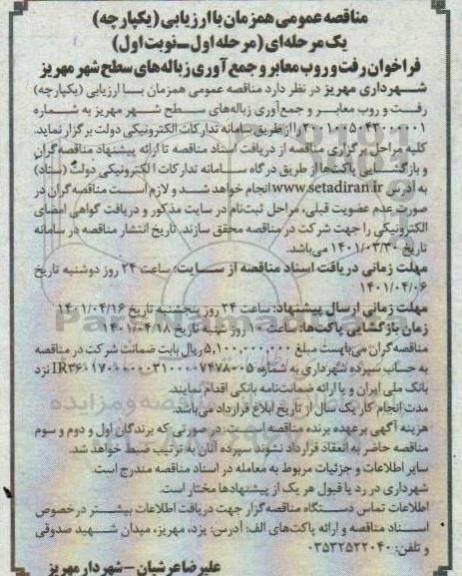 مناقصه عمومی همزمان با ارزیابی (یکپارچه)
یک مرحله‌ای (مرحله اول–نوبت اول)
فراخوان رفت و روب معابر و جمع آوری زباله‌های سطح شهر مهریز
شهرداری مهریز در نظر دارد مناقصه عمومی همزمان با ارزیابی (یکپارچه)
رفت و روب معابر و جمع‌آوری زباله‌های سطح شهر مهریز به شماره
را از طریق سامانه تدارکات الکترونیکی دولت برگزار نماید.
کلیه مراحل برگزاری مناقصه از دریافت اسناد مناقصه تا ارائه پیشنهاد مناقصه‌گران
و بازگشایی پاکت‌ها از طریق درگاه سامانه تدارکات الکترونیکی دولت (ستاد)
به آدرس www.setadiran.ir انجام خواهد شد و لازم است مناقصه‌گران در
صورت عدم عضویت قبلی، مراحل ثبت‌نام در سایت مذکور و دریافت گواهی امضای
الکترونیکی را جهت شرکت در مناقصه محقق سازند. تاریخ انتشار مناقصه در سامانه
تاریخ ۱۴۰۱/۰۳/۳۰ می‌باشد.
مهلت زمانی دریافت اسناد مناقصه از سایت: ساعت ۲۴ روز دوشنبه تاریخ
۱۴۰۱/۰۴/۰۶
مهلت زمانی ارسال پیشنهاد: ساعت ۲۴ روز پنجشنبه تاریخ ۱۴۰۱/۰۴/۱۶
زمان بازگشایی پاکت‌ها: ساعت ۱۰ روز شنبه تاریخ ۱۴۰۱/۰۴/۱۸
مناقصه‌گران می‌بایست مبلغ ۵,۱۰۰,۰۰۰,۰۰۰ ریال بابت ضمانت شرکت در مناقصه
به حساب سپرده شهرداری به شماره نزد
بانک ملی ایران و یا ارائه ضمانت‌نامه بانکی اقدام نمایند.
مدت انجام کار یک سال از تاریخ ابلاغ قرارداد می‌باشد.
هزینه آگهی بر عهده برنده مناقصه است. در صورتی که برندگان اول و دوم و سوم
مناقصه حاضر به انعقاد قرارداد نشوند سپرده آنان به ترتیب ضبط خواهد شد.
سایر اطلاعات و جزئیات مربوط به معامله در اسناد مناقصه مندرج است.
شهرداری در رد یا قبول هر یک از پیشنهادها مختار است.
اطلاعات تماس دستگاه مناقصه گزار جهت دریافت اطلاعات بیشتر در خصوص
اسناد مناقصه و ارائه پاکت‌های الف: آدرس: یزد، مهریز، میدان شهید صدوقی
و تلفن: ۰۳۵۳۲۵۲۲۰۴۰
علیرضا عرشیان – شهردار مهریز